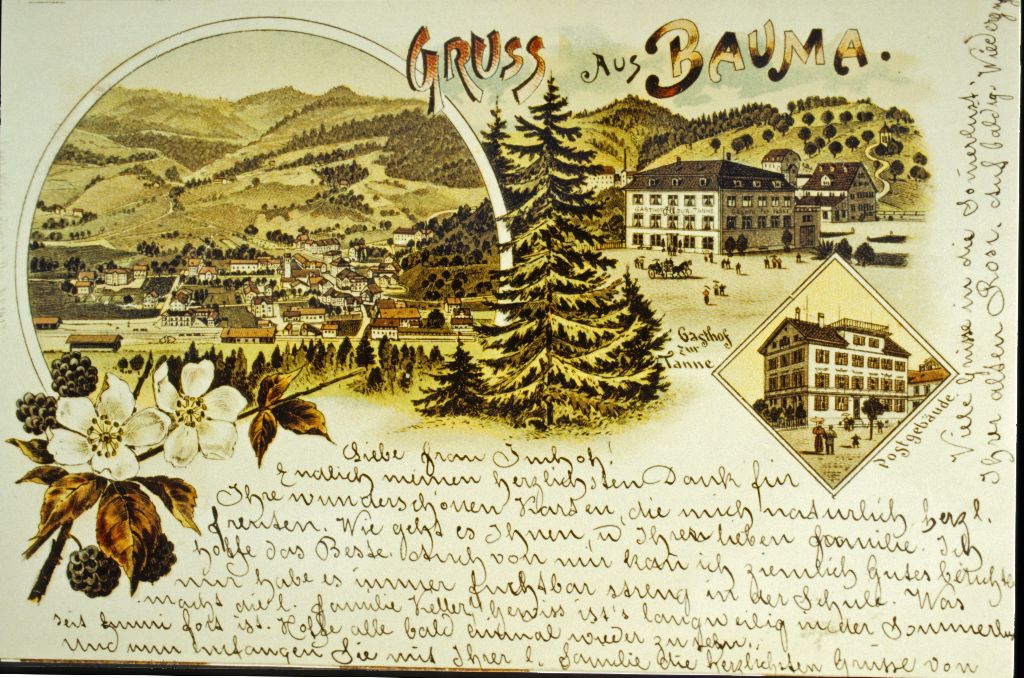 GRUSS AUS BAUMA.
GASTHOF ZUR TANNE
Gasthof
zur
Tanne
Postgebäude
Liebe Frau Imhof!
Endlich meinen herzlichsten Dank für
Ihre wunderschönen Karten, die mich natürlich herzl.
freuten. Wie geht es Ihnen, u Ihrer lieben Familie. Ich
hoffe das Beste. Auch von mir kan ich ziemlich Gutes berichten
nur habe es immer furchtbar streng in der Schule. Was
macht die l. Familie Keller? Gewiss ist's langweilig in der Sommerlust
seit Emmi fort ist. Hoffe alle bald einmal wieder zu sehn.
Und nun empfangen Sie mit Ihrer l. Familie die herzlichsten Grüsse von
Ihrer alten Rosa. auf baldig. Wieder
Viele Grüsse in die Somerlust